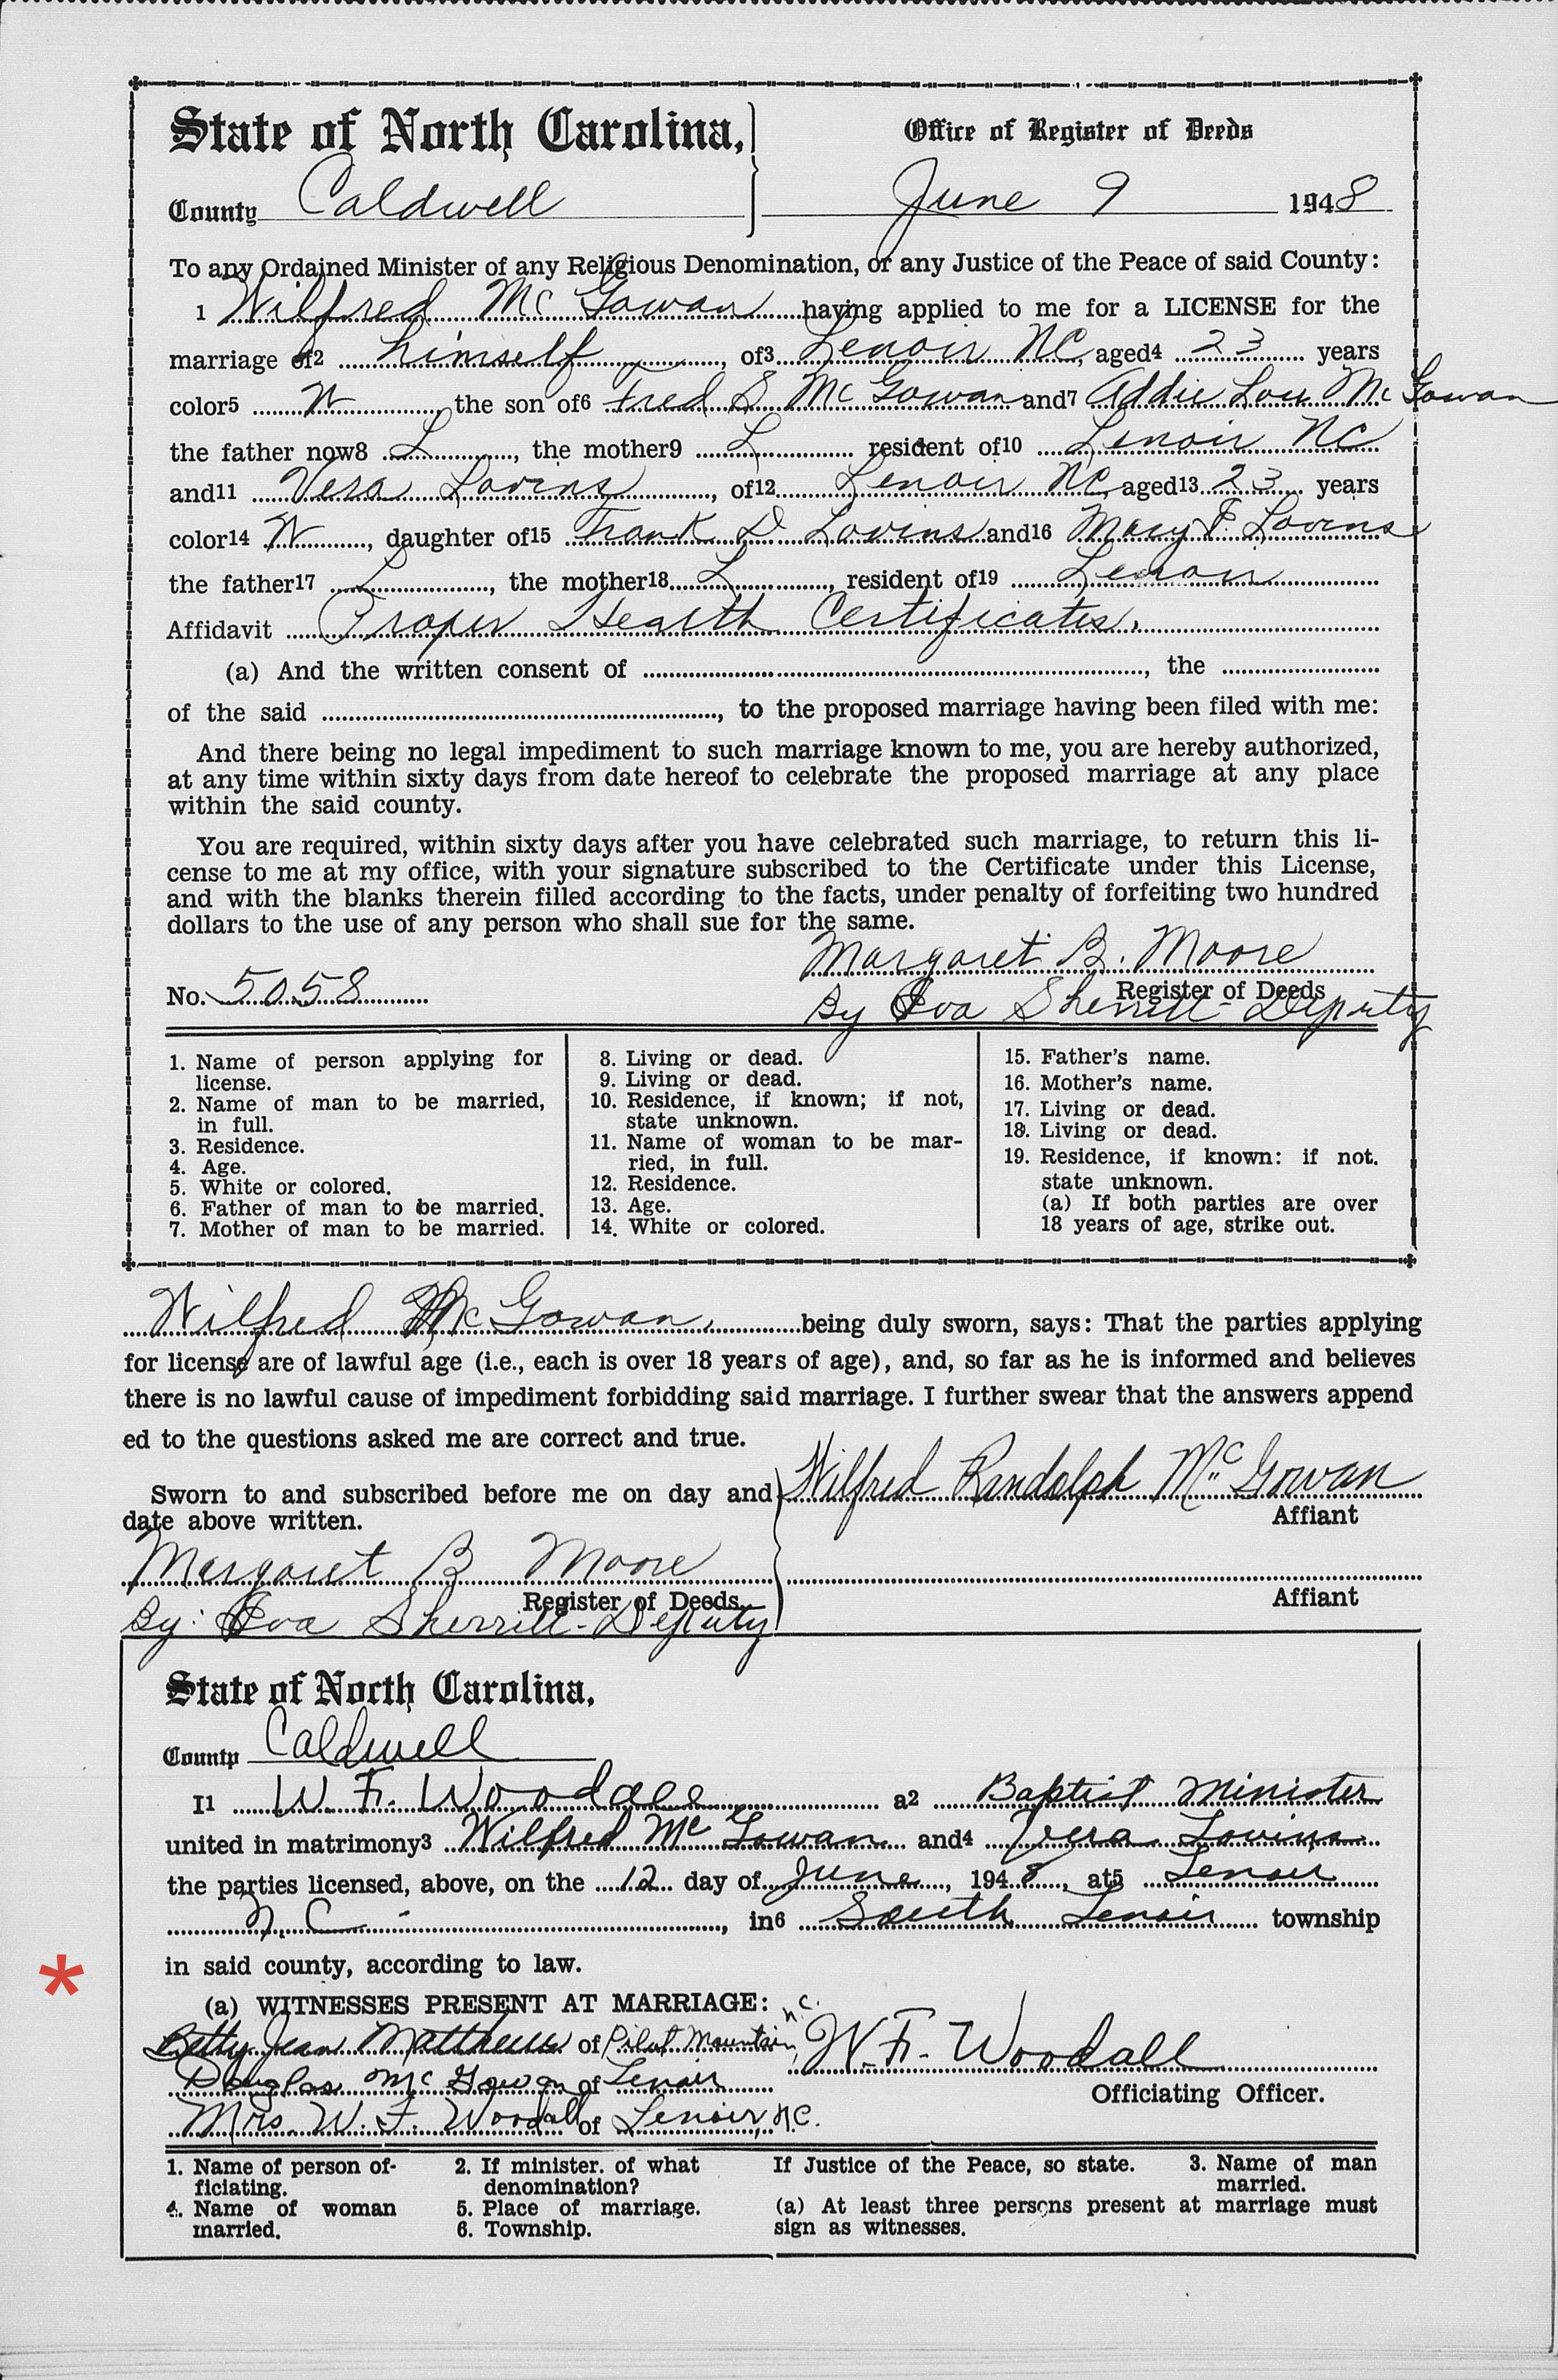 State of North Carolina, Office of Register of Deeds
County Caldwell June 9 1948
To any Ordained Minister of any Religious Denomination, or any Justice of the Peace of said County:
1 Wilfred McGowan having applied to me for a LICENSE for the
marriage of2 himself, of3 Lenoir NC, aged4 23 years
color5 W, the son of6 Fred S McGowan and7 Addie Lou McGowan
the father now8 L, the mother9 L resident of10 Lenoir NC
and11 Vera Lovins, of12 Lenoir NC, aged13 23 years
color14 W, daughter of15 Frank D Lovins and16 Mary F. Lovins
the father17 L, the mother18 L, resident of19 Lenoir
Affidavit Proper Health Certificates.
(a) And the written consent of , the
of the said , to the proposed marriage having been filed with me:
And there being no legal impediment to such marriage known to me, you are hereby authorized,
at any time within sixty days from date hereof to celebrate the proposed marriage at any place
within the said county.
You are required, within sixty days after you have celebrated such marriage, to return this li-
cense to me at my office, with your signature subscribed to the Certificate under this License,
and with the blanks therein filled according to the facts, under penalty of forfeiting two hundred
dollars to the use of any person who shall sue for the same.
Margaret B. Moore
No. 5058 Register of Deeds
By Eva Sherrill - Deputy
1. Name of person applying for
license.
2. Name of man to be married,
in full.
3. Residence.
4. Age.
5. White or colored.
6. Father of man to be married.
7. Mother of man to be married.
8. Living or dead.
9. Living or dead.
10. Residence, if known; if not,
state unknown.
11. Name of woman to be mar-
ried, in full.
12. Residence.
13. Age.
14. White or colored.
15. Father's name.
16. Mother's name.
17. Living or dead.
18. Living or dead.
19. Residence, if known: if not.
state unknown.
(a) If both parties are over
18 years of age, strike out.
Wilfred McGowan, being duly sworn, says: That the parties applying
for license are of lawful age (i.e., each is over 18 years of age), and, so far as he is informed and believes
there is no lawful cause of impediment forbidding said marriage. I further swear that the answers append
ed to the questions asked me are correct and true.
Sworn to and subscribed before me on day and Wilfred Randolph McGowan
date above written. Affiant
Margaret B Moore
Register of Deeds. Affiant
By: Eva Sherrill - Deputy
State of North Carolina,
County Caldwell
I1 W. F. Woodall a2 Baptist Minister
united in matrimony3 Wilfred McGowan and4 Vera Lovins
the parties licensed, above, on the 12 day of June, 1948, at5 Lenoir
N. C., in6 South Lenoir township
in said county, according to law.
*
(a) WITNESSES PRESENT AT MARRIAGE:
Betty Jean Matthews of Pilot Mountain, N.C. W. F. Woodall
Douglas McGowan of Lenoir Officiating Officer.
Mrs. W. F. Woodall of Lenoir, N.C.
1. Name of person of-
ficiating.
2. If minister. of what
denomination?
If Justice of the Peace, so state.
3. Name of man
married.
4. Name of woman
married.
5. Place of marriage.
6. Township.
(a) At least three persons present at marriage must
sign as witnesses.